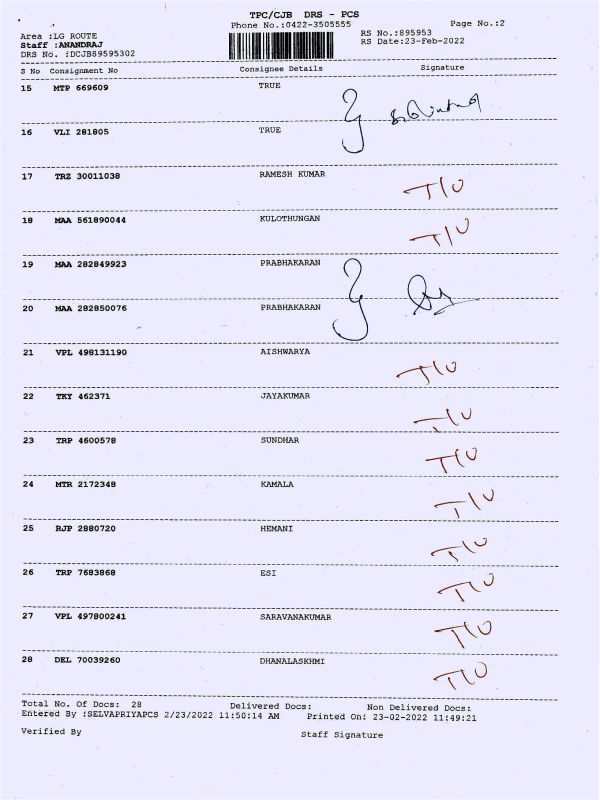 TPC/CJB DRS - PCS
Phone No.:0422-3505555 Page No.:2
Area :LG ROUTE RS No.:895953
Staff :ANANDRAJ RS Date:23-Feb-2022
DRS No. :DCJB89595302
S No Consignment No Consignee Details Signature
15 MTP 669609 TRUE
16 VLI 281805 TRUE
17 TRZ 30011038 RAMESH KUMAR T/U
18 MAA 561890044 KULOTHUNGAN T/U
19 MAA 282849923 PRABHAKARAN
20 MAA 282850076 PRABHAKARAN
21 VPL 498131190 AISHWARYA T/U
22 TKY 462371 JAYAKUMAR T/U
23 TRP 4600578 SUNDHAR T/U
24 MTR 2172348 KAMALA T/U
25 RJP 2880720 HEMANI T/U
26 TRP 7683868 ESI T/U
27 VPL 497800241 SARAVANAKUMAR T/U
28 DEL 70039260 DHANALASKHMI T/U
Total No. Of Docs: 28 Delivered Docs: Non Delivered Docs:
Entered By :SELVAPRIYAPCS 2/23/2022 11:50:14 AM Printed On: 23-02-2022 11:49:21
Verified By Staff Signature